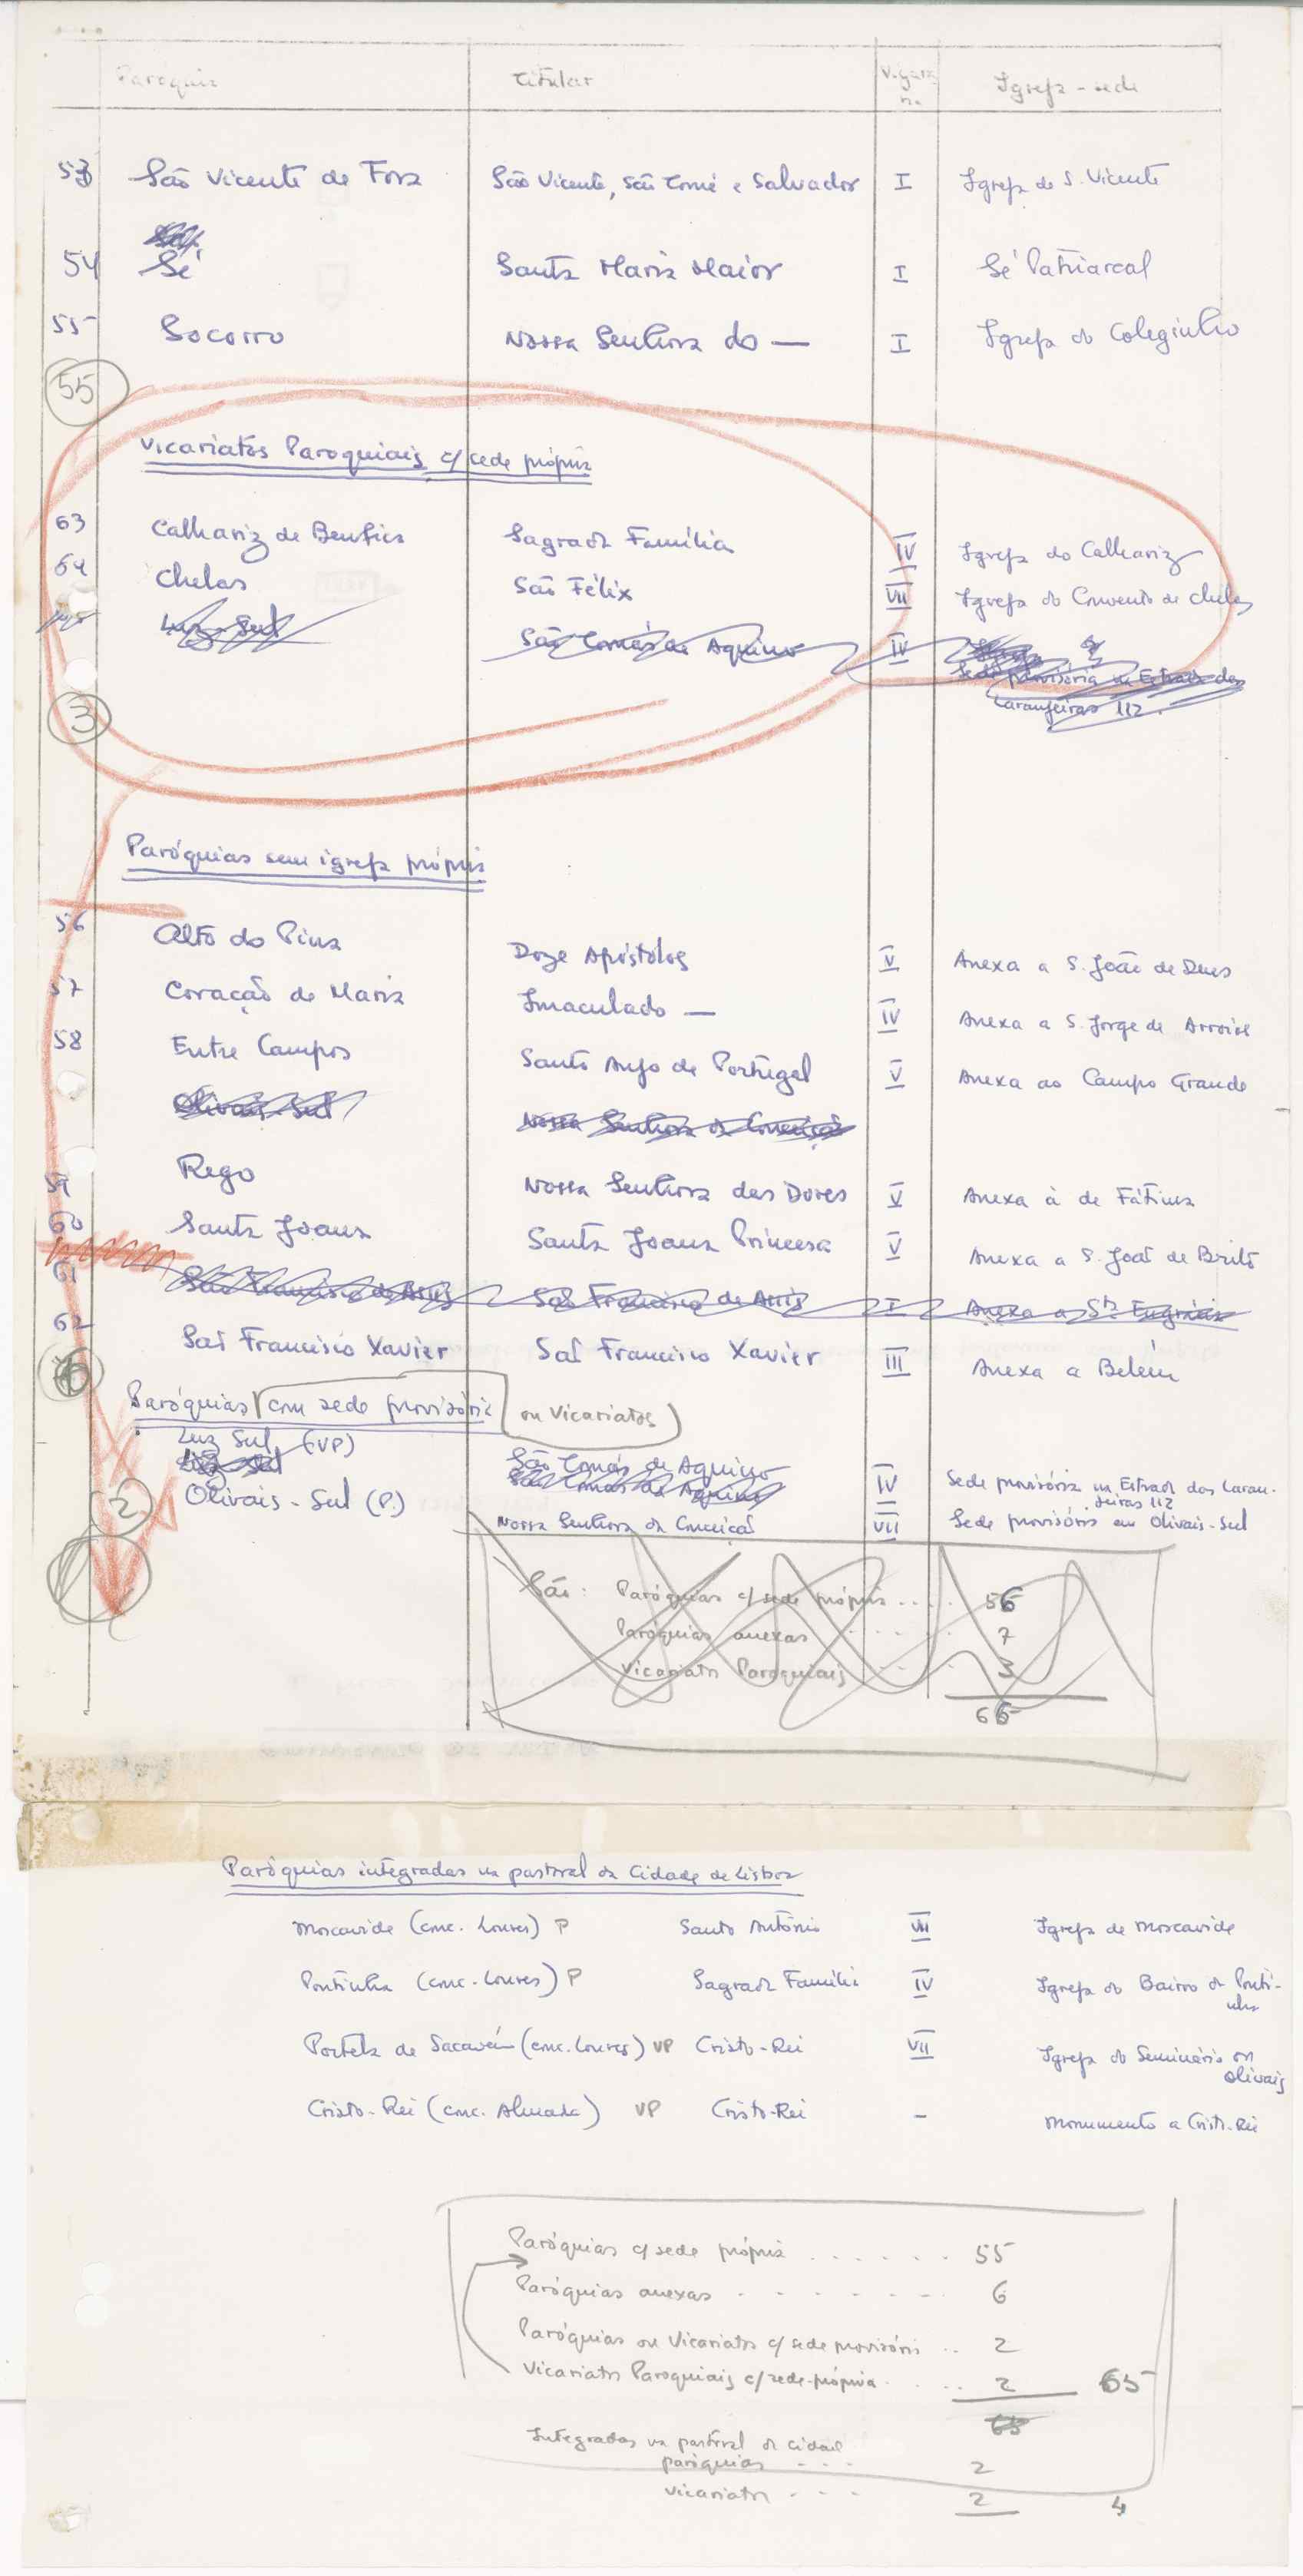 Paróquia Titular Vigara. n. Igreja-sede
53 São Vicente de Fora São Vicente, São Tomé e Salvador I Igreja de S. Vicente
54 Sé Santa Maria Maior I Sé Patriarcal
55 Socorro Nossa Senhora do — I Igreja do Coleginho
55
Vicariatos Paroquiais c/ sede própria
63 Calhariz de Benfica Sagrada Família IV Igreja do Calhariz
64 Chelas São Félix VII Igreja do Convento de Chelas
Luz-Sul São Tomás de Aquino IV
Sede provisória na Estrada das
Laranjeiras 112.
3
Paróquias sem igreja própria
56 Alto do Pina Doze Apóstolos V Anexa a S. João de Deus
57 Coração de Maria Imaculado — IV Anexa a S. Jorge de Arroios
58 Entre Campos Santo Anjo de Portugal V Anexa ao Campo Grande
Olivais-Sul Nossa Senhora da Conceição
59 Rego Nossa Senhora das Dores V Anexa à de Fátima
60 Santa Joana Santa Joana Princesa V Anexa a S. João de Brito
61 São Francisco de Assis São Francisco de Assis I Anexa a Sta Engrácia
62 São Francisco Xavier São Francisco Xavier III Anexa a Belém
6
Paróquias com sede provisória ou Vicariatos
Luz Sul (VP) São Tomás de Aquino IV Sede provisória na Estrada das Laran-
jeiras 112
Luz Sul São Tomás de Aquino
2 Olivais-Sul (P.) Nossa Senhora da Conceição VII Sede provisória em Olivais-Sul
São: Paróquias c/ sede própria .... 56
Paróquias anexas ..... 7
Vicariatos Paroquiais ... 3
66
Paróquias integradas na pastoral da Cidade de Lisboa
Moscavide (conc. Loures) P Santo António VII Igreja de Moscavide
Pontinha (conc. Loures) P Sagrada Família IV Igreja do Bairro da Ponti-
nha
Portela de Sacavém (conc. Loures) VP Cristo-Rei VII Igreja do Seminário dos
Olivais
Cristo-Rei (conc. Almada) VP Cristo-Rei - Monumento a Cristo-Rei
Paróquias c/ sede própria ...... 55
Paróquias anexas ....... 6
Paróquias ou Vicariatos c/ sede provisória .. 2
Vicariatos Paroquiais c/ sede-própria .... 2 65
65
Integradas na pastoral da cidade
paróquias ... 2
vicariatos ... 2 4